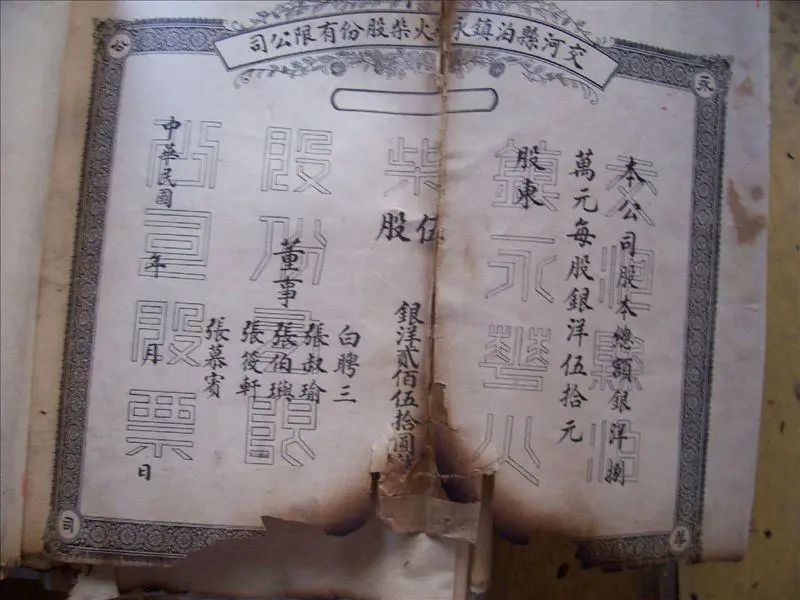 交河縣泊鎮永火柴股份有限公司
永
公
本公司股本總額銀洋捌
萬元每股銀洋伍拾元
股東
伍股
銀洋貳佰伍拾圓
董事
白聘三
張叔瑜
張伯璵
張筱軒
張慕賓
中華民國 年 月 日
交河縣泊
鎮永華火
柴
股份有限
公司股票
華
司